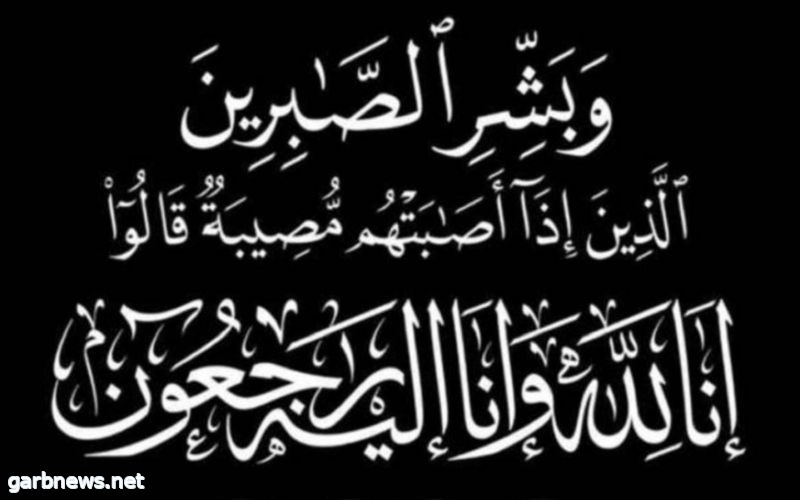 وَبَشِّرِ ٱلصَّـٰبِرِينَ
ٱلَّذِينَ إِذَآ أَصَـٰبَتْهُم مُّصِيبَةٌ قَالُوٓا۟
إِنَّا لِلَّهِ وَإِنَّا إِلَيْهِ رَاجِعُونَ
garbnews.net